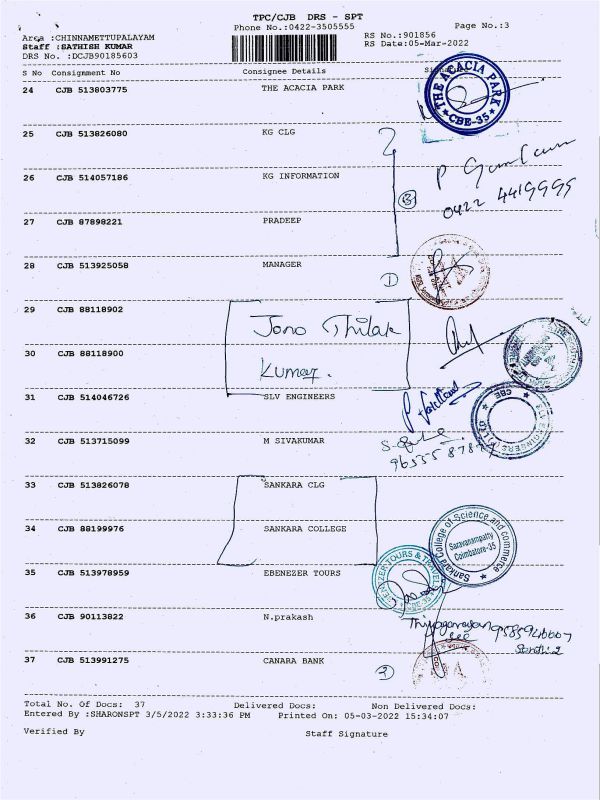 TPC/CJB DRS - SPT
Phone No.:0422-3505555
Page No.:3
Area :CHINNAMETTUPALAYAM
Staff :SATHISH KUMAR
DRS No. :DCJB90185603
RS No.:901856
RS Date:05-Mar-2022
S No Consignment No Consignee Details
24 CJB 513803775 THE ACACIA PARK
THE ACACIA PARK
CBE-35
25 CJB 513826080 KG CLG
26 CJB 514057186 KG INFORMATION
0422 4419995
27 CJB 87898221 PRADEEP
28 CJB 513925058 MANAGER
29 CJB 88118902
Jono Thilak
30 CJB 88118900
Kumar.
31 CJB 514046726 SLV ENGINEERS
32 CJB 513715099 M SIVAKUMAR
33 CJB 513826078 SANKARA CLG
34 CJB 88199976 SANKARA COLLEGE
Sankara College of Science and commerce
Saravanampatty
Coimbatore-35
35 CJB 513978959 EBENEZER TOURS
EBENEZER TOURS & TRAVEL
36 CJB 90113822 N.prakash
37 CJB 513991275 CANARA BANK
Total No. Of Docs: 37 Delivered Docs: Non Delivered Docs:
Entered By :SHARONSPT 3/5/2022 3:33:36 PM Printed On: 05-03-2022 15:34:07
Verified By Staff Signature